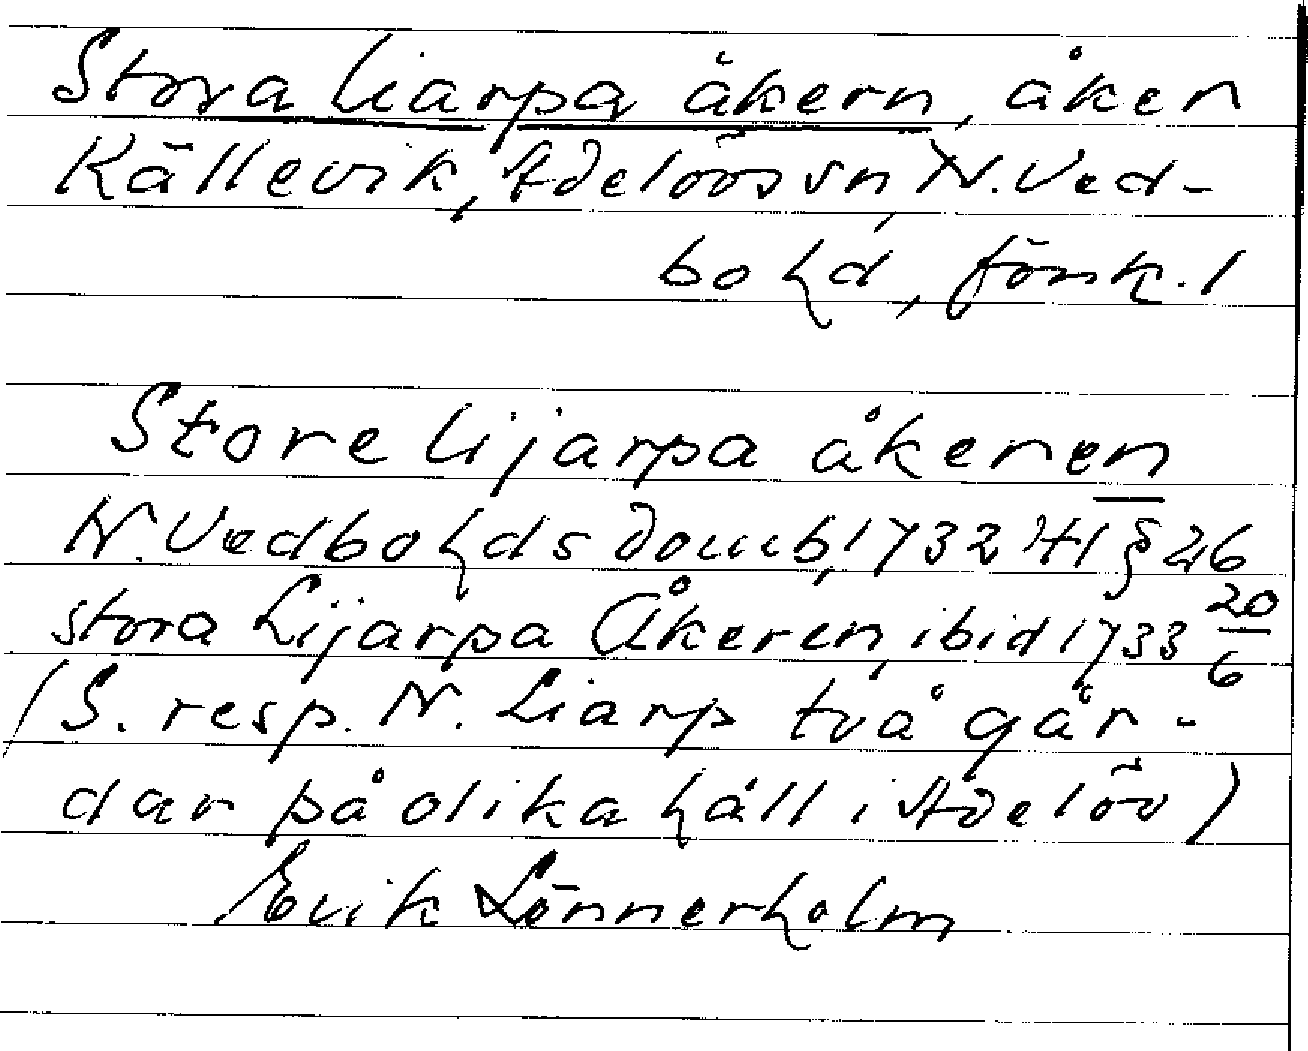 Stora liarpa åkern, åker
Källevik, Adelövs sn, N. Ved-
bo hd, försk. 1
Store lijarpa åkeren
N. Vedbo hds domb, 1732 H1 § 26
stora Lijarpa Åkeren, ibid 1733 20/6
(S. resp. N. Liarp två går-
dar på olika håll i Adelöv)
Erik Lönnerholm